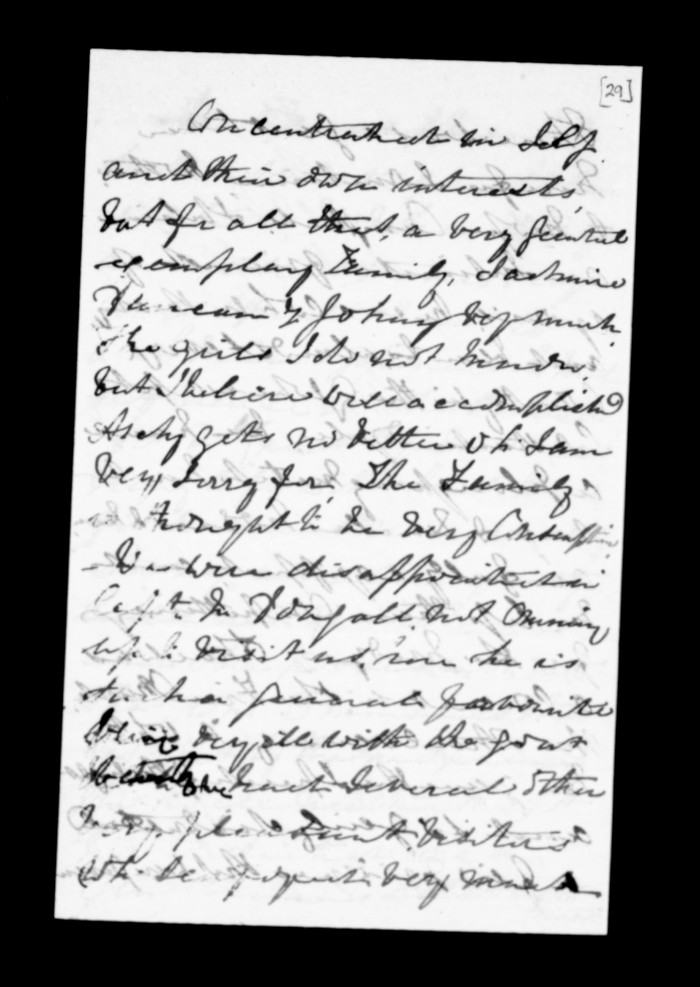 [29]
Concentrated in Self
and their own interests,
but for all that, a very
exemplary Family, I admire
Duncan & Johny very much
The girls I do not know,
but I believe well accomplished
Archy gets no better Oh I am
Very Sorry for, The Family
thought to be very
We were disappointed in
Capt. not coming
up to visit us, he is
Such a general favourite
very ill with the gout
had several other
very pleasant visitors
very much